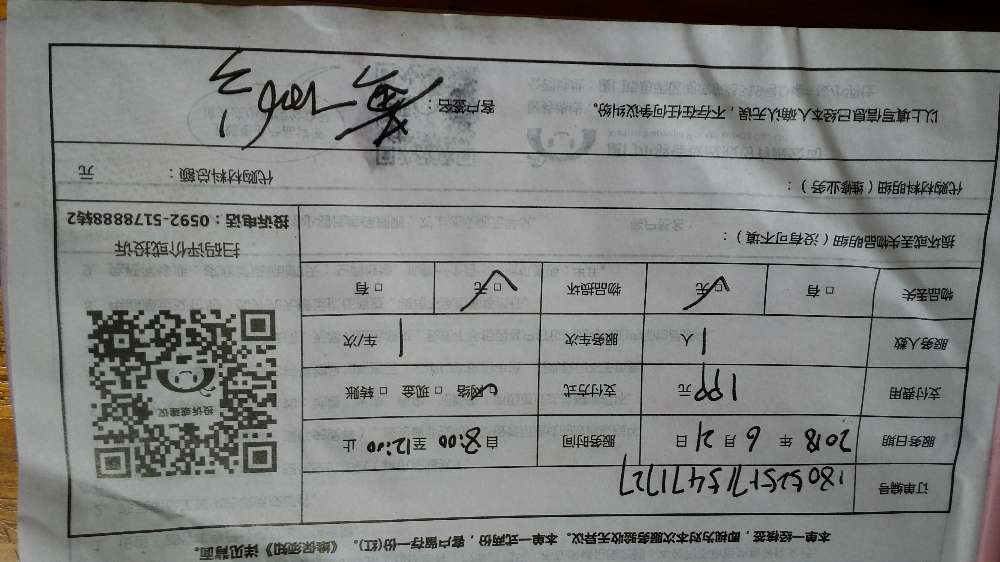 本单一经核签，即视为对本次服务验收无异议。本单一式两份，客户留存一份(红)。《维保须知》详见背面。
订单编号
服务日期 2018 年 6 月 21 日 服务时间 自 8:00 至 12:00 止
支付费用 199 元 支付方式 网络 □ 现金 □ 转账
服务人数 1 人 服务车次 1 车/次
物品丢失 □ 有 □ 无 物品损坏 □ 无 □ 有
投诉或建议
扫码评价或投诉
投诉电话：0592-5178888转2
损坏或丢失物品明细（没有可不填）：
代购材料明细（维修业务）： 代购材料总额： 元
以上填写信息已经本人确认无误，不存在任何争议纠纷。 客户签名：